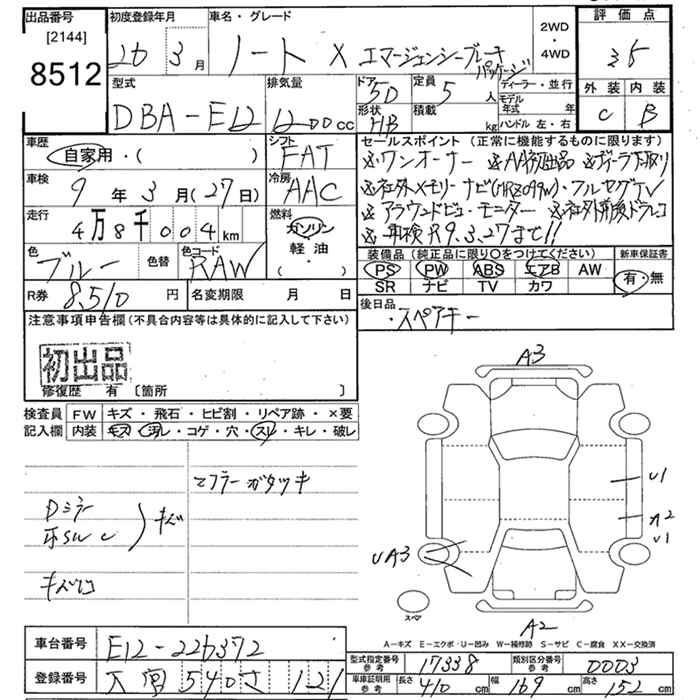 出品番号
[2144]
8512
初度登録年月
26 3月
車名・グレード
ノート X エマージェンシーブレーキ
パッケージ
2WD
・
4WD
評価点
3.5
外装 内装
C B
型式
DBA-E12
排気量
1200cc
ドア
5D
定員
5人
ディーラー・並行
モデル年式 年
ハンドル 左・右
形状
HB
積載
kg
車歴
自家用・( )
シフト
FAT
車検
9年3月(27日)
冷房
AAC
走行
4万8千004km
燃料
ガソリン
軽油
・( )
色
ブルー
色替
色コード
RAW
R券 8,510円
名変期限 月 日
セールスポイント (正常に機能するものに限ります)
※ワンオーナー ※AA初出品 ※ディーラー下取り
※社外メモリーナビ(MRZ09W)・フルセグTV
※アラウンドビューモニター ※社外前後ドラレコ
※車検R9.3.27まで!!
装備品 (純正品に限り○をつけてください)
新車保証書
PS PW ABS エアB AW
SR ナビ TV カワ
有・無
後日品
・スペアキー
注意事項申告欄 (不具合内容等は具体的に記入して下さい)
初出品
修復歴 有 [箇所 ]
検査員記入欄
FW キズ・飛石・ヒビ割・リペア跡・×要
内装 キズ・汚レ・コゲ・穴・スレ・キレ・破レ
マフラーガタツキ
Dミラー
キズ
A3
U1
U1
UA3
スペア
A2
A-キズ E-エクボ・U-凹み W-補修跡 S-サビ C-腐食 XX-交換済
車台番号 E12-226372
登録番号
540さ 121
型式指定番号 参考 17338
類別区分番号 参考 0003
車庫証明用 参考 長さ 410cm 幅 169cm 高さ 152cm